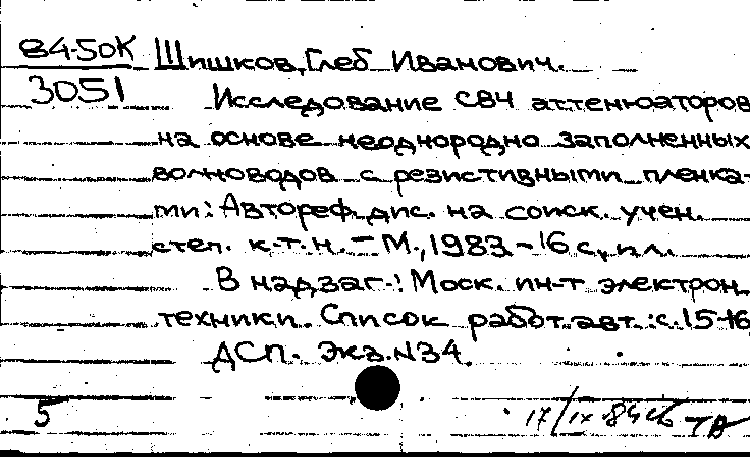 84-50К Шишков, Глеб Иванович.
3051 Исследование СВЧ аттенюаторов
на основе неоднородно заполненных
волноводов с резистивными пленка-
ми: Автореф. дис. на соиск. учен.
степ. к.т.н. - М., 1983 - 16 с., ил.
В надзаг.: Моск. ин-т электрон.
техники. Список работ авт.: с. 15-16
ДСП. Экз. N34.
5 17/IX-84